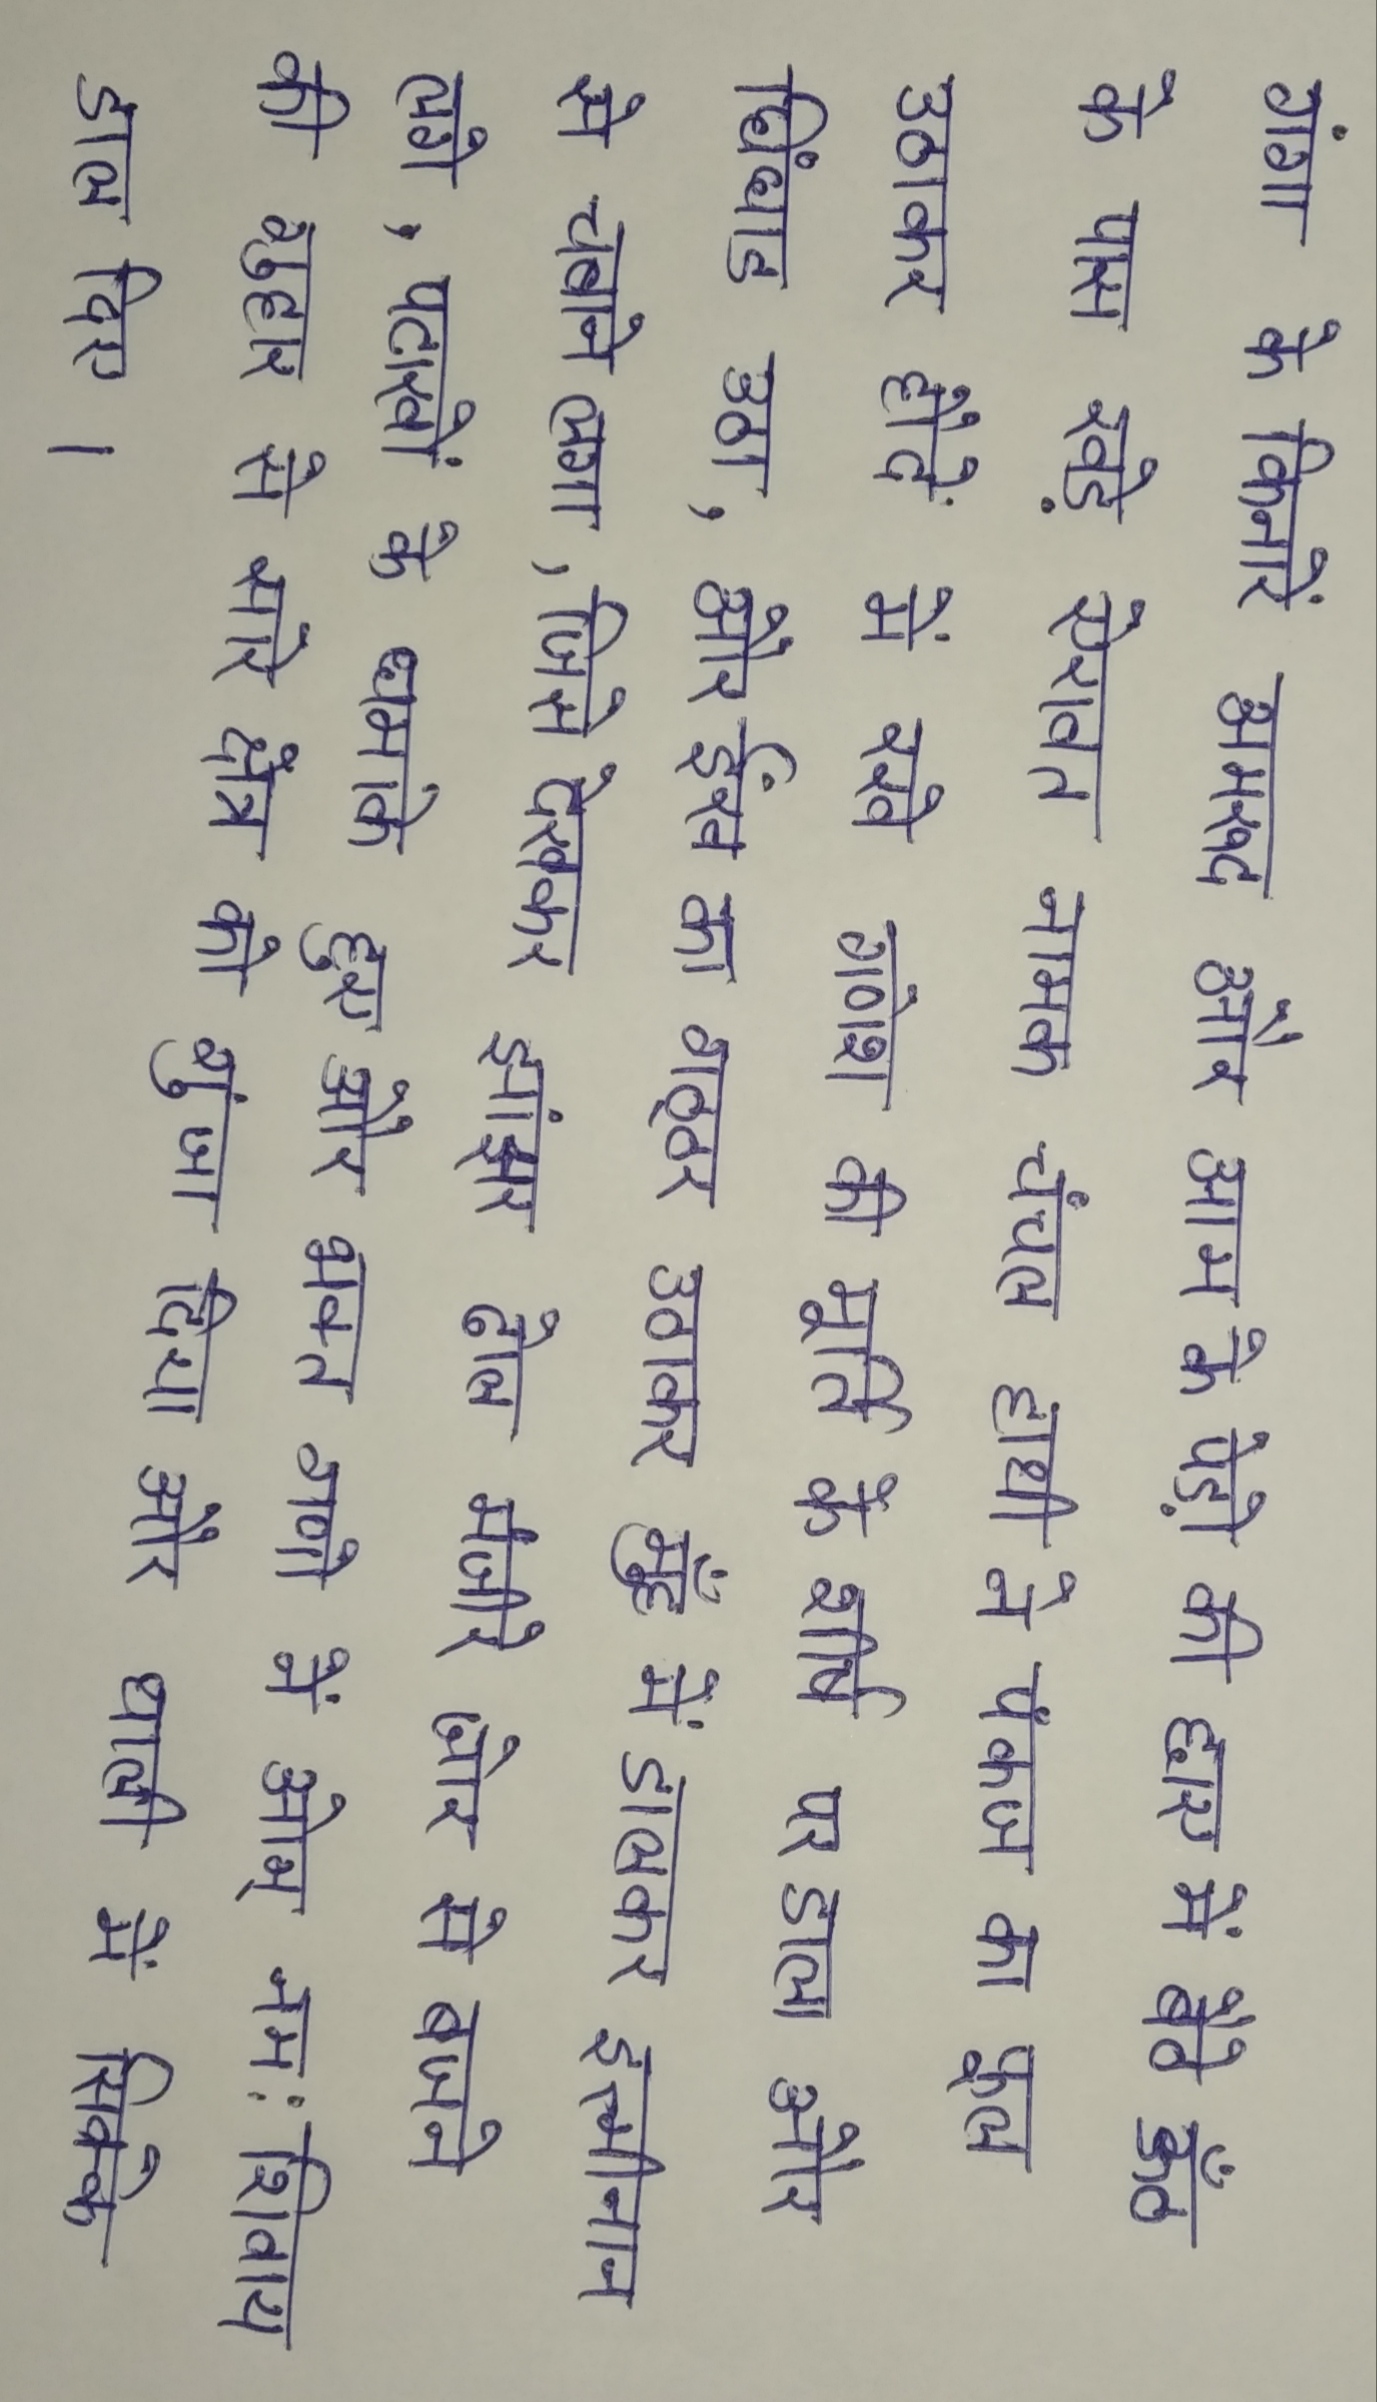 गंगा के किनारें अमरुद और आम के पेड़ो की छाए में बैठे ऊँठ
के पास खड़े ऐरावत नामक चंचल हाथी ने पंकज का फूल
उठाकर हौदें में रखे गणेश की मूर्ति के शीर्ष पर डाला और
घिंघाड उठा, और ईंख का गठ्ठर उठाकर मुँह में डालकर इत्मीनान
से चबाने लगा, जिसे देखकर झांझर ढोल मंजीरे जोर से बजने
लगे, पटाखों के धमाके हुए और भक्त गणो नें ओम् नमः शिवाय
की गुहार से सारे क्षेत्र को गुंजा दिया और थाली में सिक्के
डाल दिए।